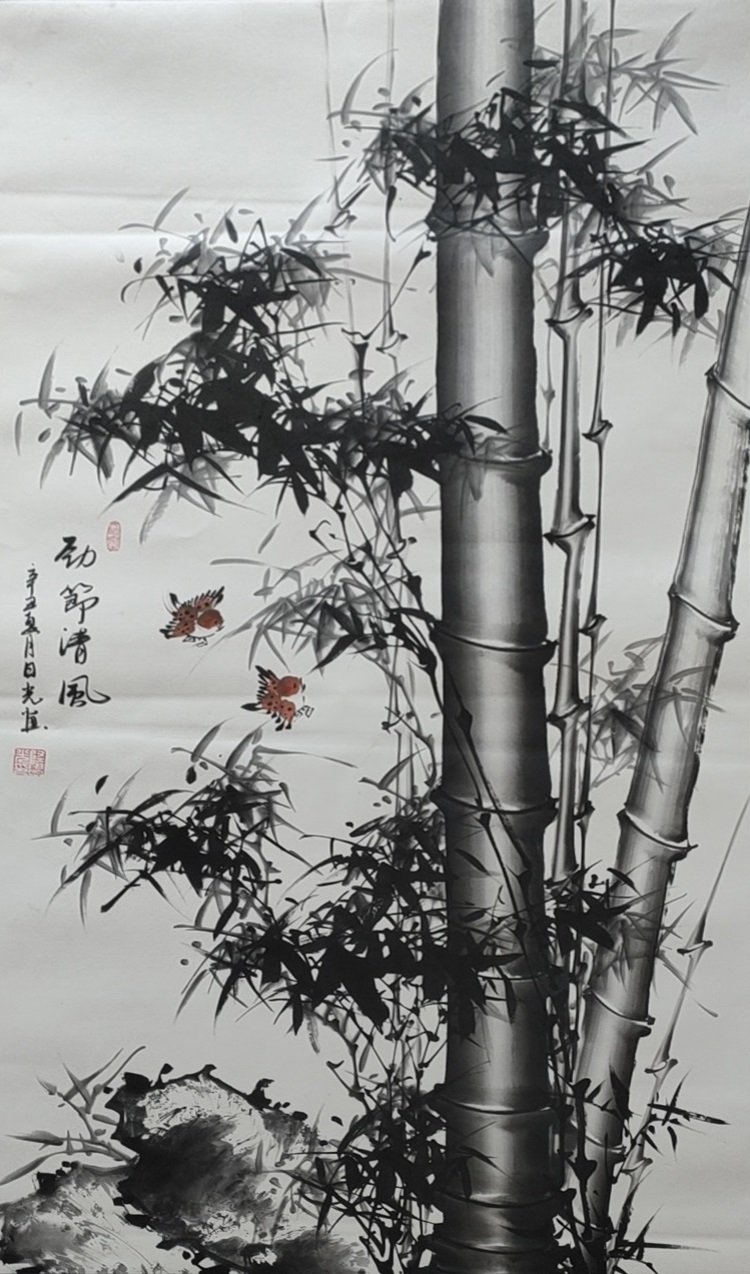 劲節清風
辛丑夏月日光畫